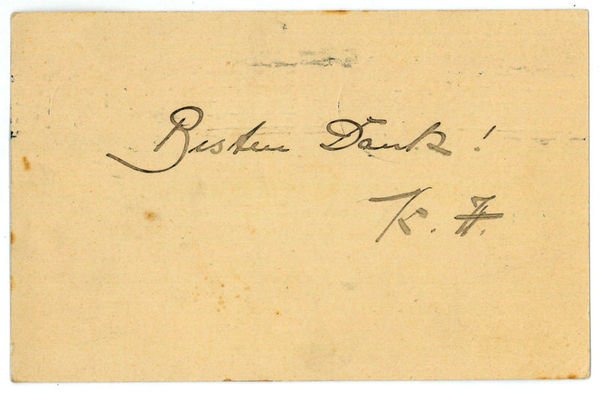 Besten Dank!
K. H.